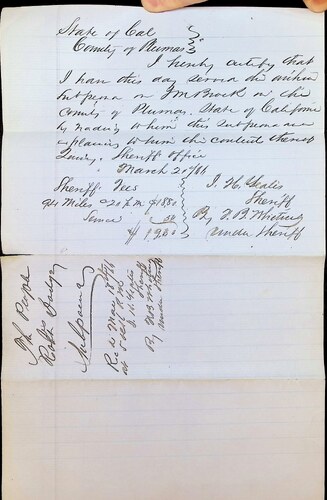 State of Cal
County of Plumas } ss
I hereby certify that
I have this day served the within
Subpoena on J M Brock in the
County of Plumas State of California
by reading to him this Subpoena and
explaining to him the contents thereof
Quincy. Sheriff office
March 20/66
Sheriff Fees
94 Miles @ 20 c m $18 80
Service 50
$ 19 30
J. H. Yeates
Sheriff
By F. B. Whitney
under Sheriff
The People
vs
Robt Dodge
Subpoena
Recd March 18/66
at 5 o'clock P M
J. H. Yeates
Sheriff
By F B Whitney
under Sheriff